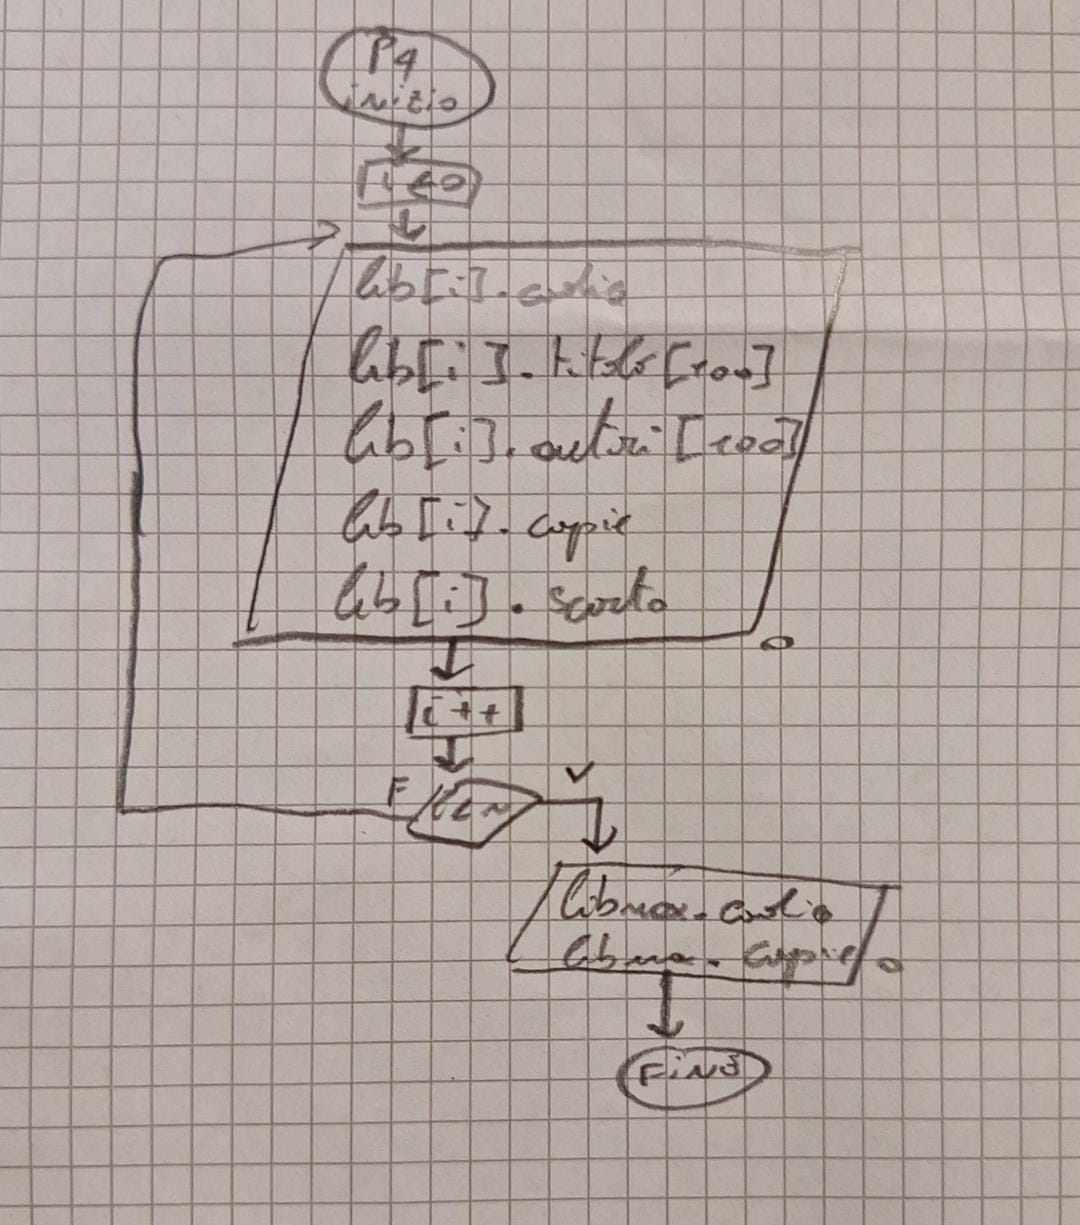 P4
inizio
i ← 0
lib[i].codice
lib[i].titolo[100]
lib[i].autori[100]
lib[i].copie
lib[i].scorto
O
i++
F
i<N
V
libmax.codice
libmax.copie
O
FINE